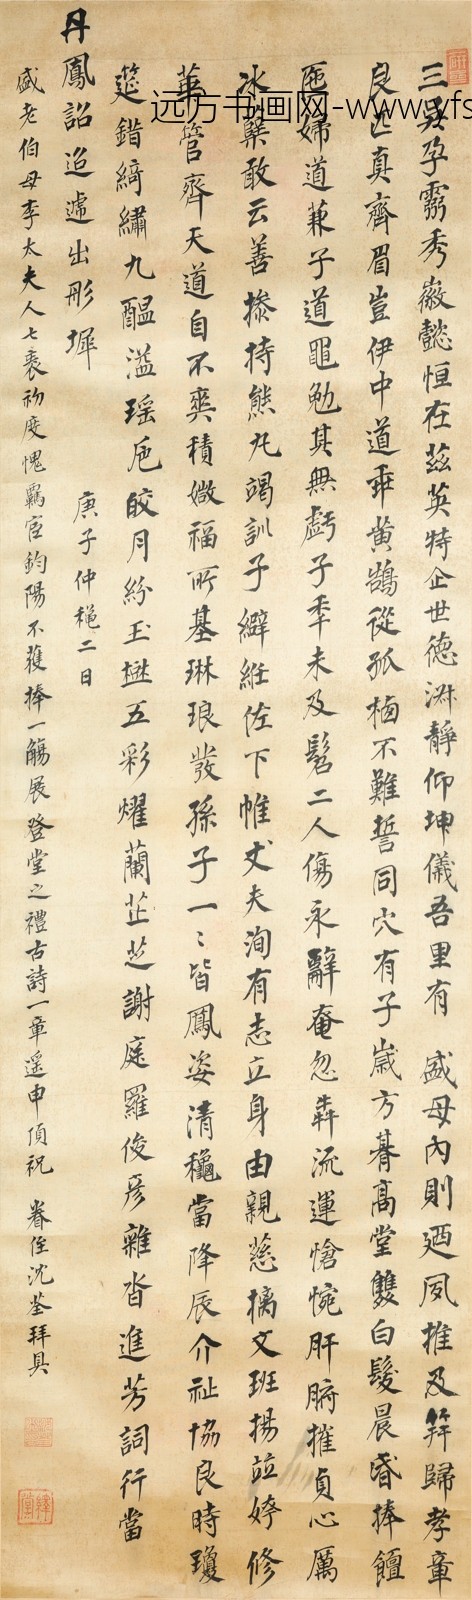 三吳孕靈秀徽懿恒在茲英特企世德淵靜仰坤儀吾里有 盛母內則迺夙推及笄歸孝章
良匹真齊眉豈伊中道乖黃鵠從孤栖不難誓同穴有子歲方朞高堂雙白髮晨昏捧饘
匜婦道兼子道黽勉其無虧子年未及髫二人傷永辭奄忽犇流運愴惋肝腑摧貞心厲
冰檗敢云善摻持熊丸竭訓子纑絍佐下帷丈夫洵有志立身由親慈摛文班揚竝姱修
華管齊天道自不爽積媺福所基琳琅發孫子一〻皆鳳姿清龝當降辰介祉協良時瓊
筵錯綺繡九醖溢瑤卮皎月紛玉樾五彩燿蘭芷芝謝庭羅俊彥雜沓進芳詞行當
丹鳳詔迢遞出彤墀
庚子仲龝二日
盛老伯母李太夫人七袠初度愧羈官鈞陽不獲捧一觴展登堂之禮古詩一章遥申頂祝 眷侄沈荃拜具
远方书画网-www.yfs